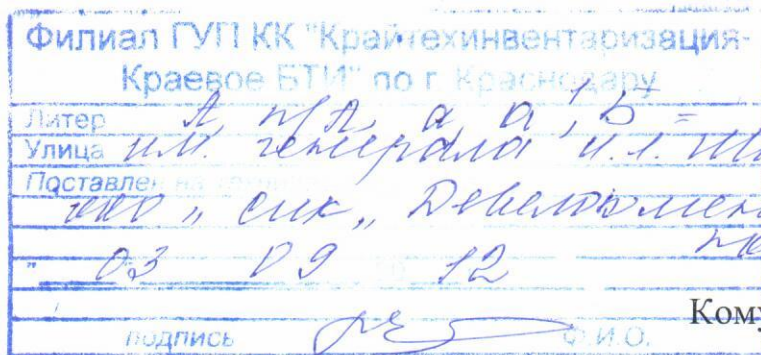 Филиал ГУП КК "Крайтехинвентаризация-
Краевое БТИ" по г. Краснодару
Литер А, п/А, а, а', Б =
Улица им. генерала И.Л.
Поставлен на
" СИК "
" 03 09 12
Кому
подпись Ф.И.О.